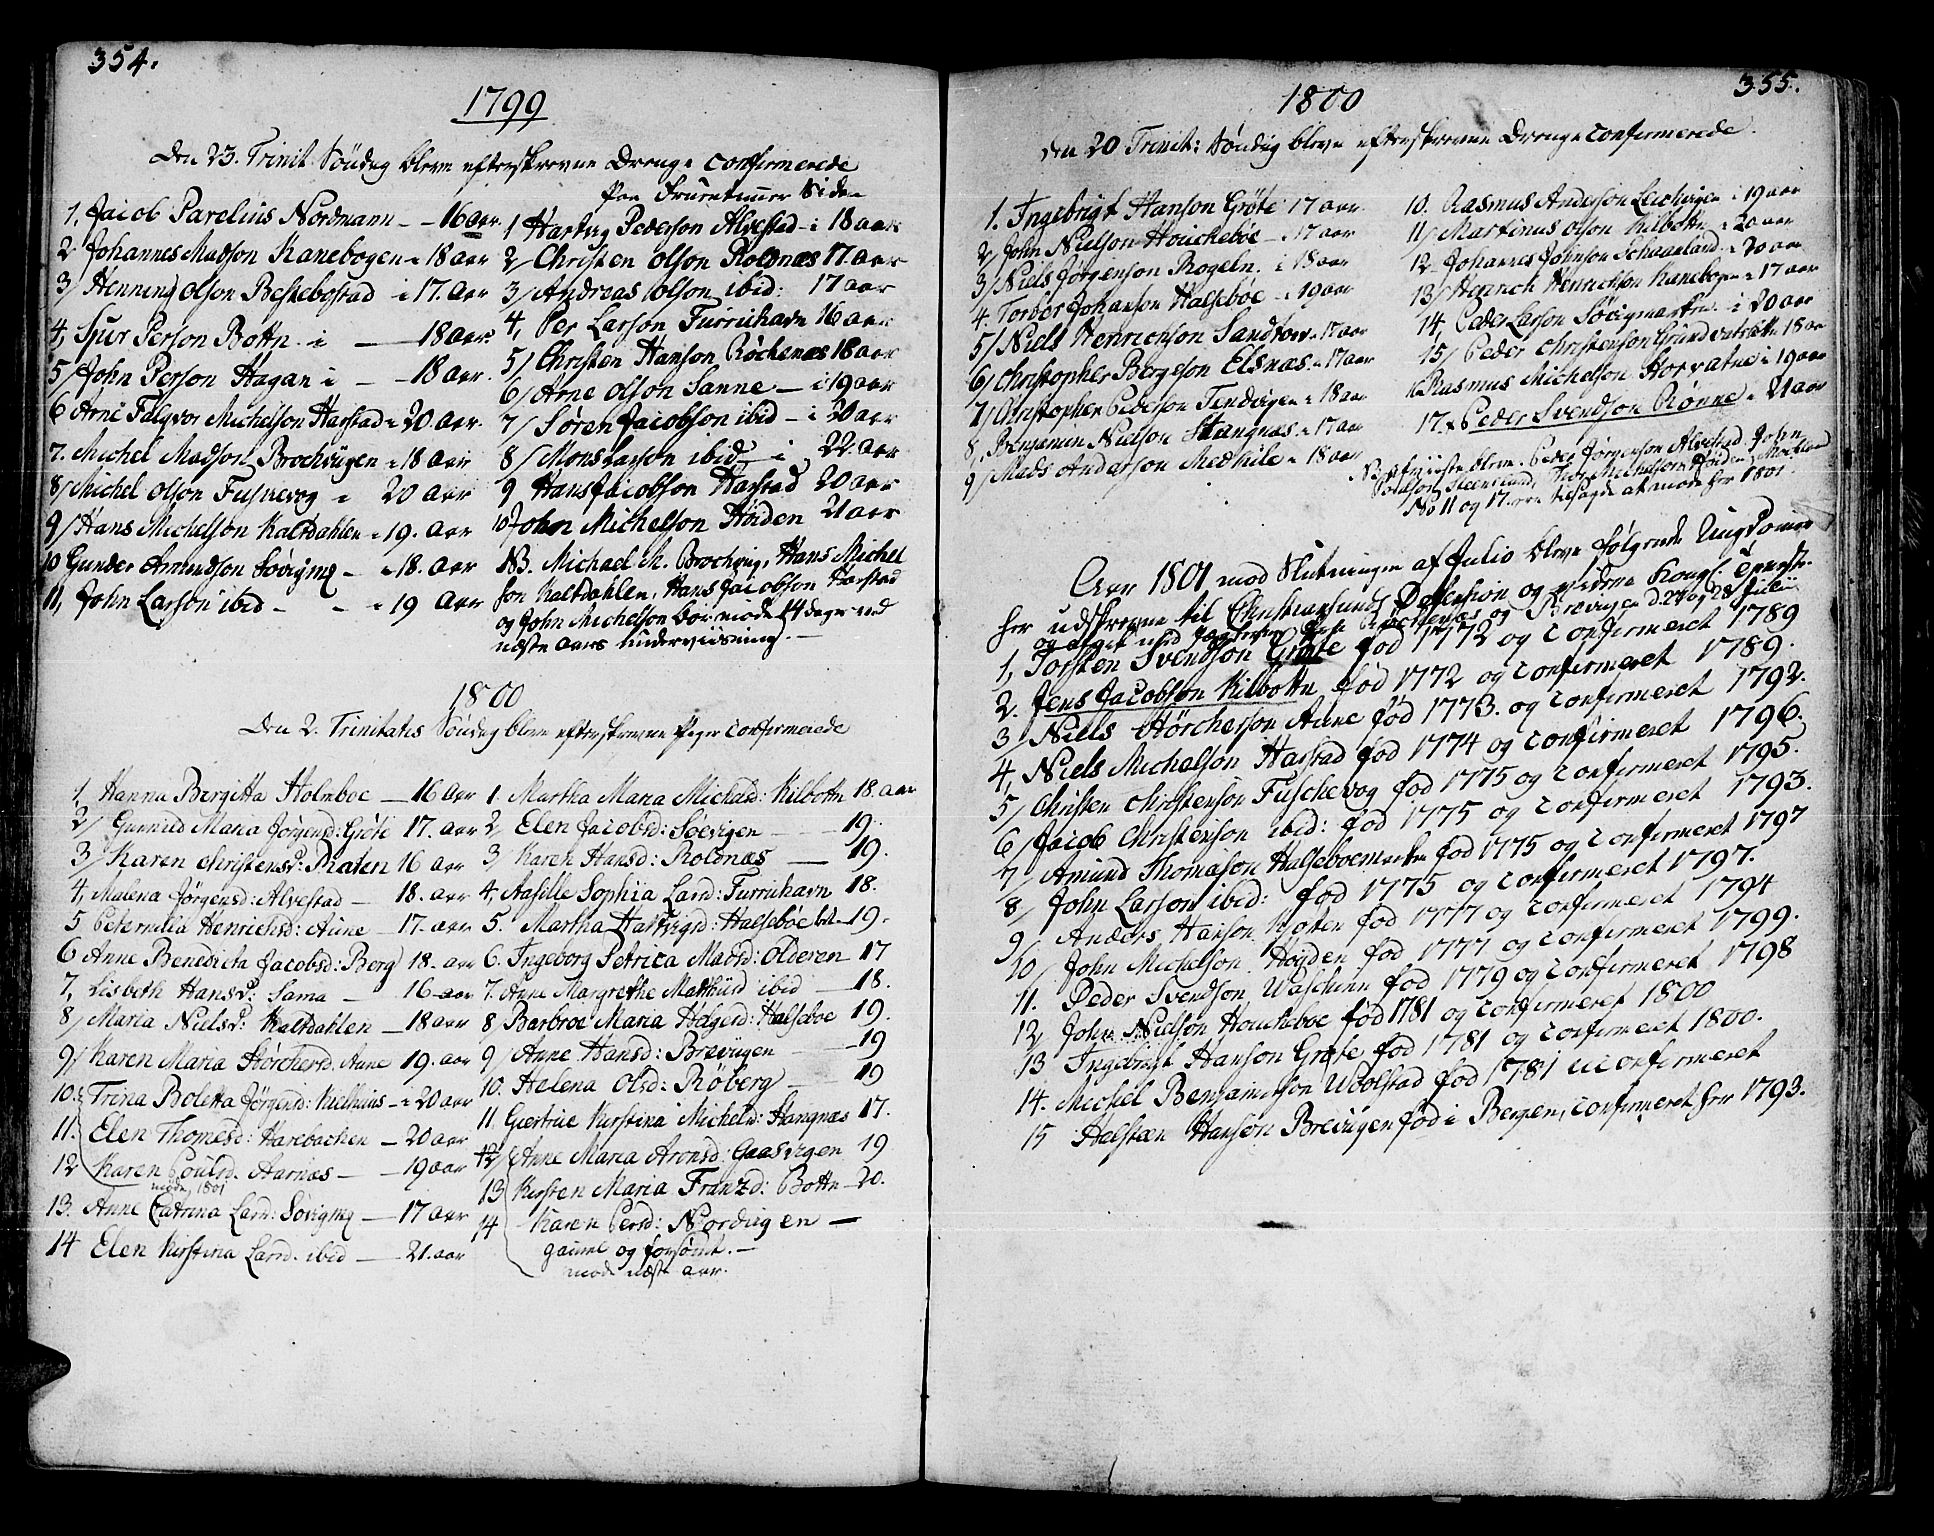 354.
1799
Den 23. Trinit Söndag bleve efterskrevne Drenge confirmerede
1, Jacob Parelius Nordmann – – 16 aar
2 Johannes Madson Kanebogen – 18 aar
3/ Henning Olson Beskebostad i 17. aar
4, Sjur Person Bottn i — 18 aar
5/ John Person Hagan i — 18 aar.
6 Arne Falqvor Michelson Harstad – 20 aar.
7. Michel Madson Brochvigen – 18 aar
8/ Michel Olson Fuskevog i 20 aar
9/ Hans Michelson Kaltdahlen – 19. aar
10 Gunder Amundson Sövigmq – 18. aar
11, John Larson ibid – – – 19 aar
Paa Fruentimer Siden
1 Hartvig Pederson Alvestad – i 18 aar
2/ Christen Olson Roldnæs 17. aar
3/ Andreas Olson ibid: 17 aar
4, Per Larson Furruhavn 16 aar
5/ Christen Hanson Röchenæs 18 aar
6/ Arne Olson Sanne – i 19 aar
7/ Sören Jacobson ibid – i 20 aar
8/ Mons Larson ibid – i 22. aar
9 Hans Jacobson Harstad 20 aar
10 John Michelson Höiden 21 aar
NB. Michael M. Brochvig, Hans Michel
son Kaltdahlen, Hans Jacobson Harstad
og John Michelson bör möde 14 dage ved
næste aars underviisning. —
1800
Den 2. Trinitatis Söndag bleve efterskrevne Piger confirmerede
1, Hanna Bergitta Holmboe — 16 aar
2/ Gunnild Maria Jörgensd: Gröte 17. aar
3/ Karen Christensd: Platen 16 aar
4, Malena Jörgensd: Alvestad — 18. aar
5 Peternilia Henrichsd: Aune – 17. aar
6 Anne Benedicta Jacobsd: Berg 18. aar
7, Lisbeth Hansd: Sama — 16 aar
8/ Maria Nielsd: Kaltdahlen — 18 aar
9/ Karen Maria Störchersd. Aune 19. aar
10. Trina Boletta Jörgensd: Kielhuus – 20 aar
11. Elen Thomesd: Harebachen – 20 aar
12 Karen Poulsd. Aarnæs – – 19 aar
mode 1801
13. Anne Catrina Larsd: Sövigmq — 17 aar
14 Elen Kirstina Larsd. ibid — 21. aar
1. Martha Maria Michaelsd: Kilbottn 18. aar
2/ Elen Jacobsd: Söevigen – – 19.
3/ Karen Hansd: Roldnæs — 19.
4, Aasille Sophia Larsd: Furruhavn 18.
5. Martha Hartvigsd: Halseböe – 19.
6. Ingeborg Petrica Madsd: Olderen 17
7. Anne Margrethe Mathiisd ibid — 18.
8/ Barbroe Maria Holgersd: Halseböe 19.
9/ Anne Hansd: Brevigen — 19
10. Helena Olsd: Röberg — 19
11. Giertrue Kirstina Michelsd: Stangnæs 17.
12/ Anne Maria Aronsd: Gaasvigen 19
13 Kirsten Maria Franzd: Bottn – 20.
14 Karen Persd: Nordvigen —
gamel og forsömt. —
mode næste aar.
355.
1800
Den 20 Trinit: Söndag bleve efterskrevne Drenge confirmerede.
1. Ingebrigt Hanson Gröte 17 aar
2/ John Nielson Houcheböe – i 17 aar
3/ Niels Jörgenson Rogeln. i 18 aar
4. Torber Johanson Halseböe – 19 aar
5/ Niels Henrichson Sandtorv – 17 aar
6/ Christopher Bergeson Elsnæs – 17 aar
7/ Christopher Pederson Tendvigen – 18 aar
8, Benjamin Nielson Stangnæs – 17 aar
9/ Mads Anderson Medkile – 18 aar
10. Rasmus Anderson Leichvigen i 19 aar
11/ Martinus Olson Kilbottn – 20 aar
12 – Johannes Johnson Schaarland – 20 aar
13/ Henrich Henrichson Kanebogen – 17 aar
14, Peder Larson Sövigmarken – i 20 aar
15/ Peder Christenson Grundvatn 18 aar
16 Rasmus Michelson Horvatne i 19 aar
17. x Peder Svendson Rönne – 21 aar
bleve. Peder Jörgenson Alvestad. John
Michelson Höiden
No 11 og 17. ere tilsagde at mode for 1801.
Aar 1801 mod Slutningen af Julio bleve fölgende Ungdommer
her udskrevne til Christiansunds Defension og videre Kongl: Tjeneste
og Brevigen d. 27 og 28 Julii
1, Torsten Svendson Gröte föd 1772 og Confirmeret 1789
2. Jens Jacobson Kilbottn föd 1772 og Confirmeret 1789.
3/ Niels Störcherson Aune föd 1773. og confirmeret 1792.
4, Niels Michelson Harstad föd 1774 og confirmeret 1796.
5/ Christen Christenson Fuschevog föd 1775 og Confirmeret 1795.
6/ Jacob Christenson ibid: föd 1775 og Confirmeret 1793.
7/ Amund Thomason Halseboemarken föd 1775 og Confirmeret 1797
8/ John Larson ibid: föd 1775 og Confirmeret 1797.
9/ Anders Hanson Molten föd 1777 og Confirmeret 1794
10/ John Michelson Höiden föd 1777 og Confirmeret 1799.
11. Peder Svendson Waschinn föd 1779 og Confirmeret 1798
12, John Nielson Houcheboe föd 1781 og Confirmeret 1800
13 Ingebrigt Hanson Gröte föd 1781 og Confirmeret 1800.
14. Michel Benjaminson Woolstad föd 1781 uconfirmeret
15 Halsteen Hanson Brevigen föd i Bergen, confirmeret her 1793.